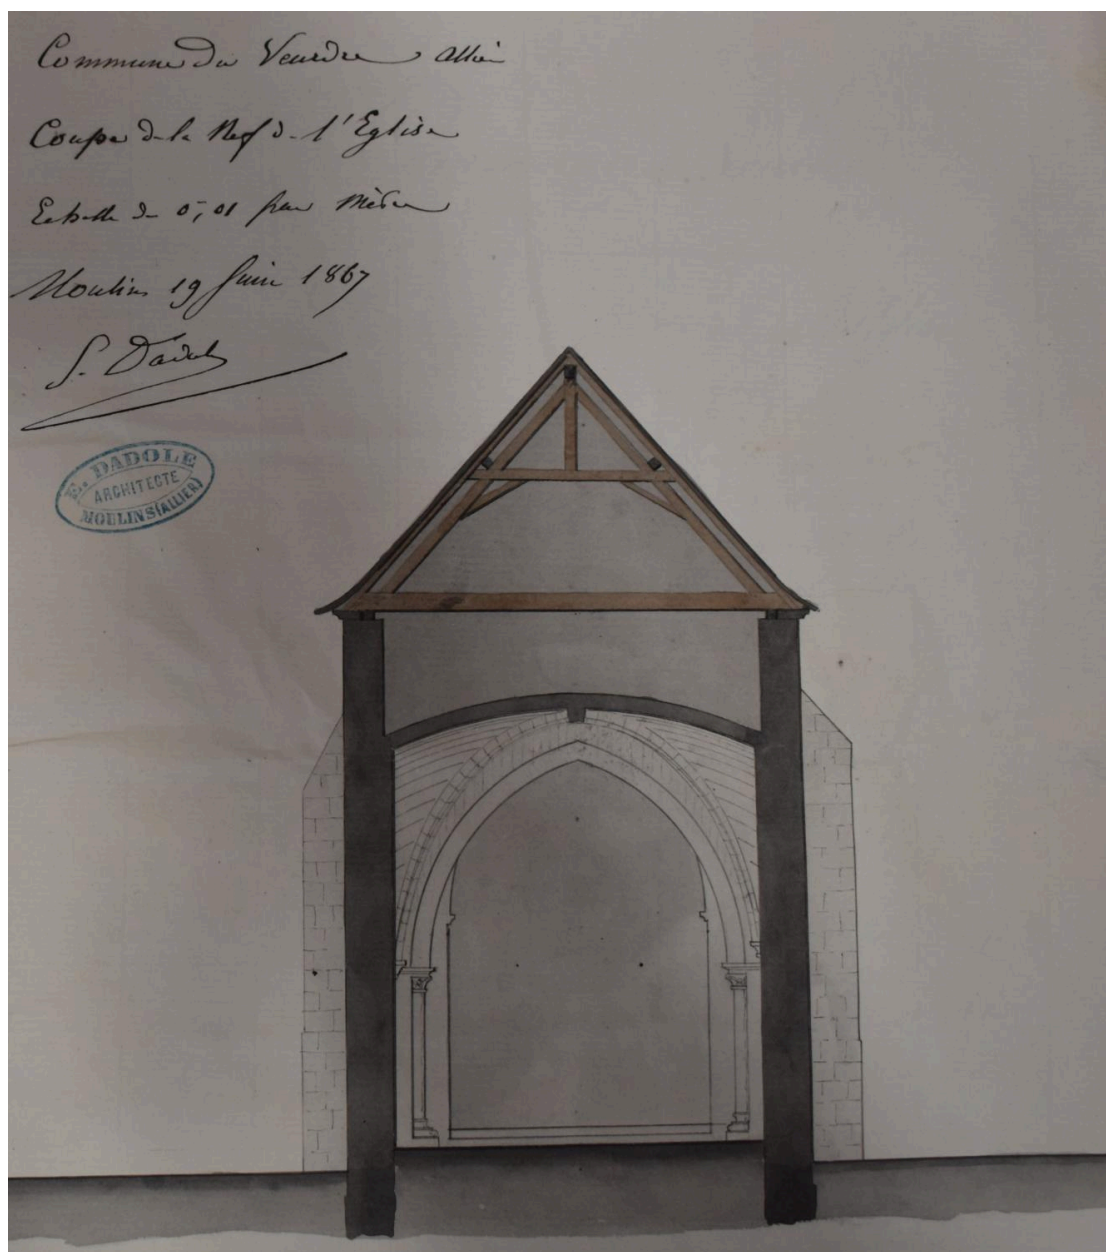 Commune du Veurdre Allier
Coupe de la Nef de l'Eglise
Echelle de 0,m01 par Mètre
Moulins 19 Juin 1867
E. Dadole
E. DADOLE
ARCHITECTE
MOULINS (ALLIER)